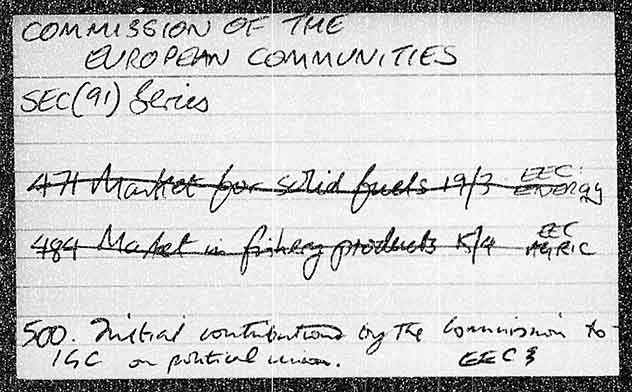 COMMISSION OF THE
EUROPEAN COMMUNITIES
SEC(91) Series
471 Market for solid fuels 19/3 EEC ENERGY
484 Market in fishery products 15/4 EEC AGRIC
500. Initial contributions by the Commission to
IGC on political union. EEC